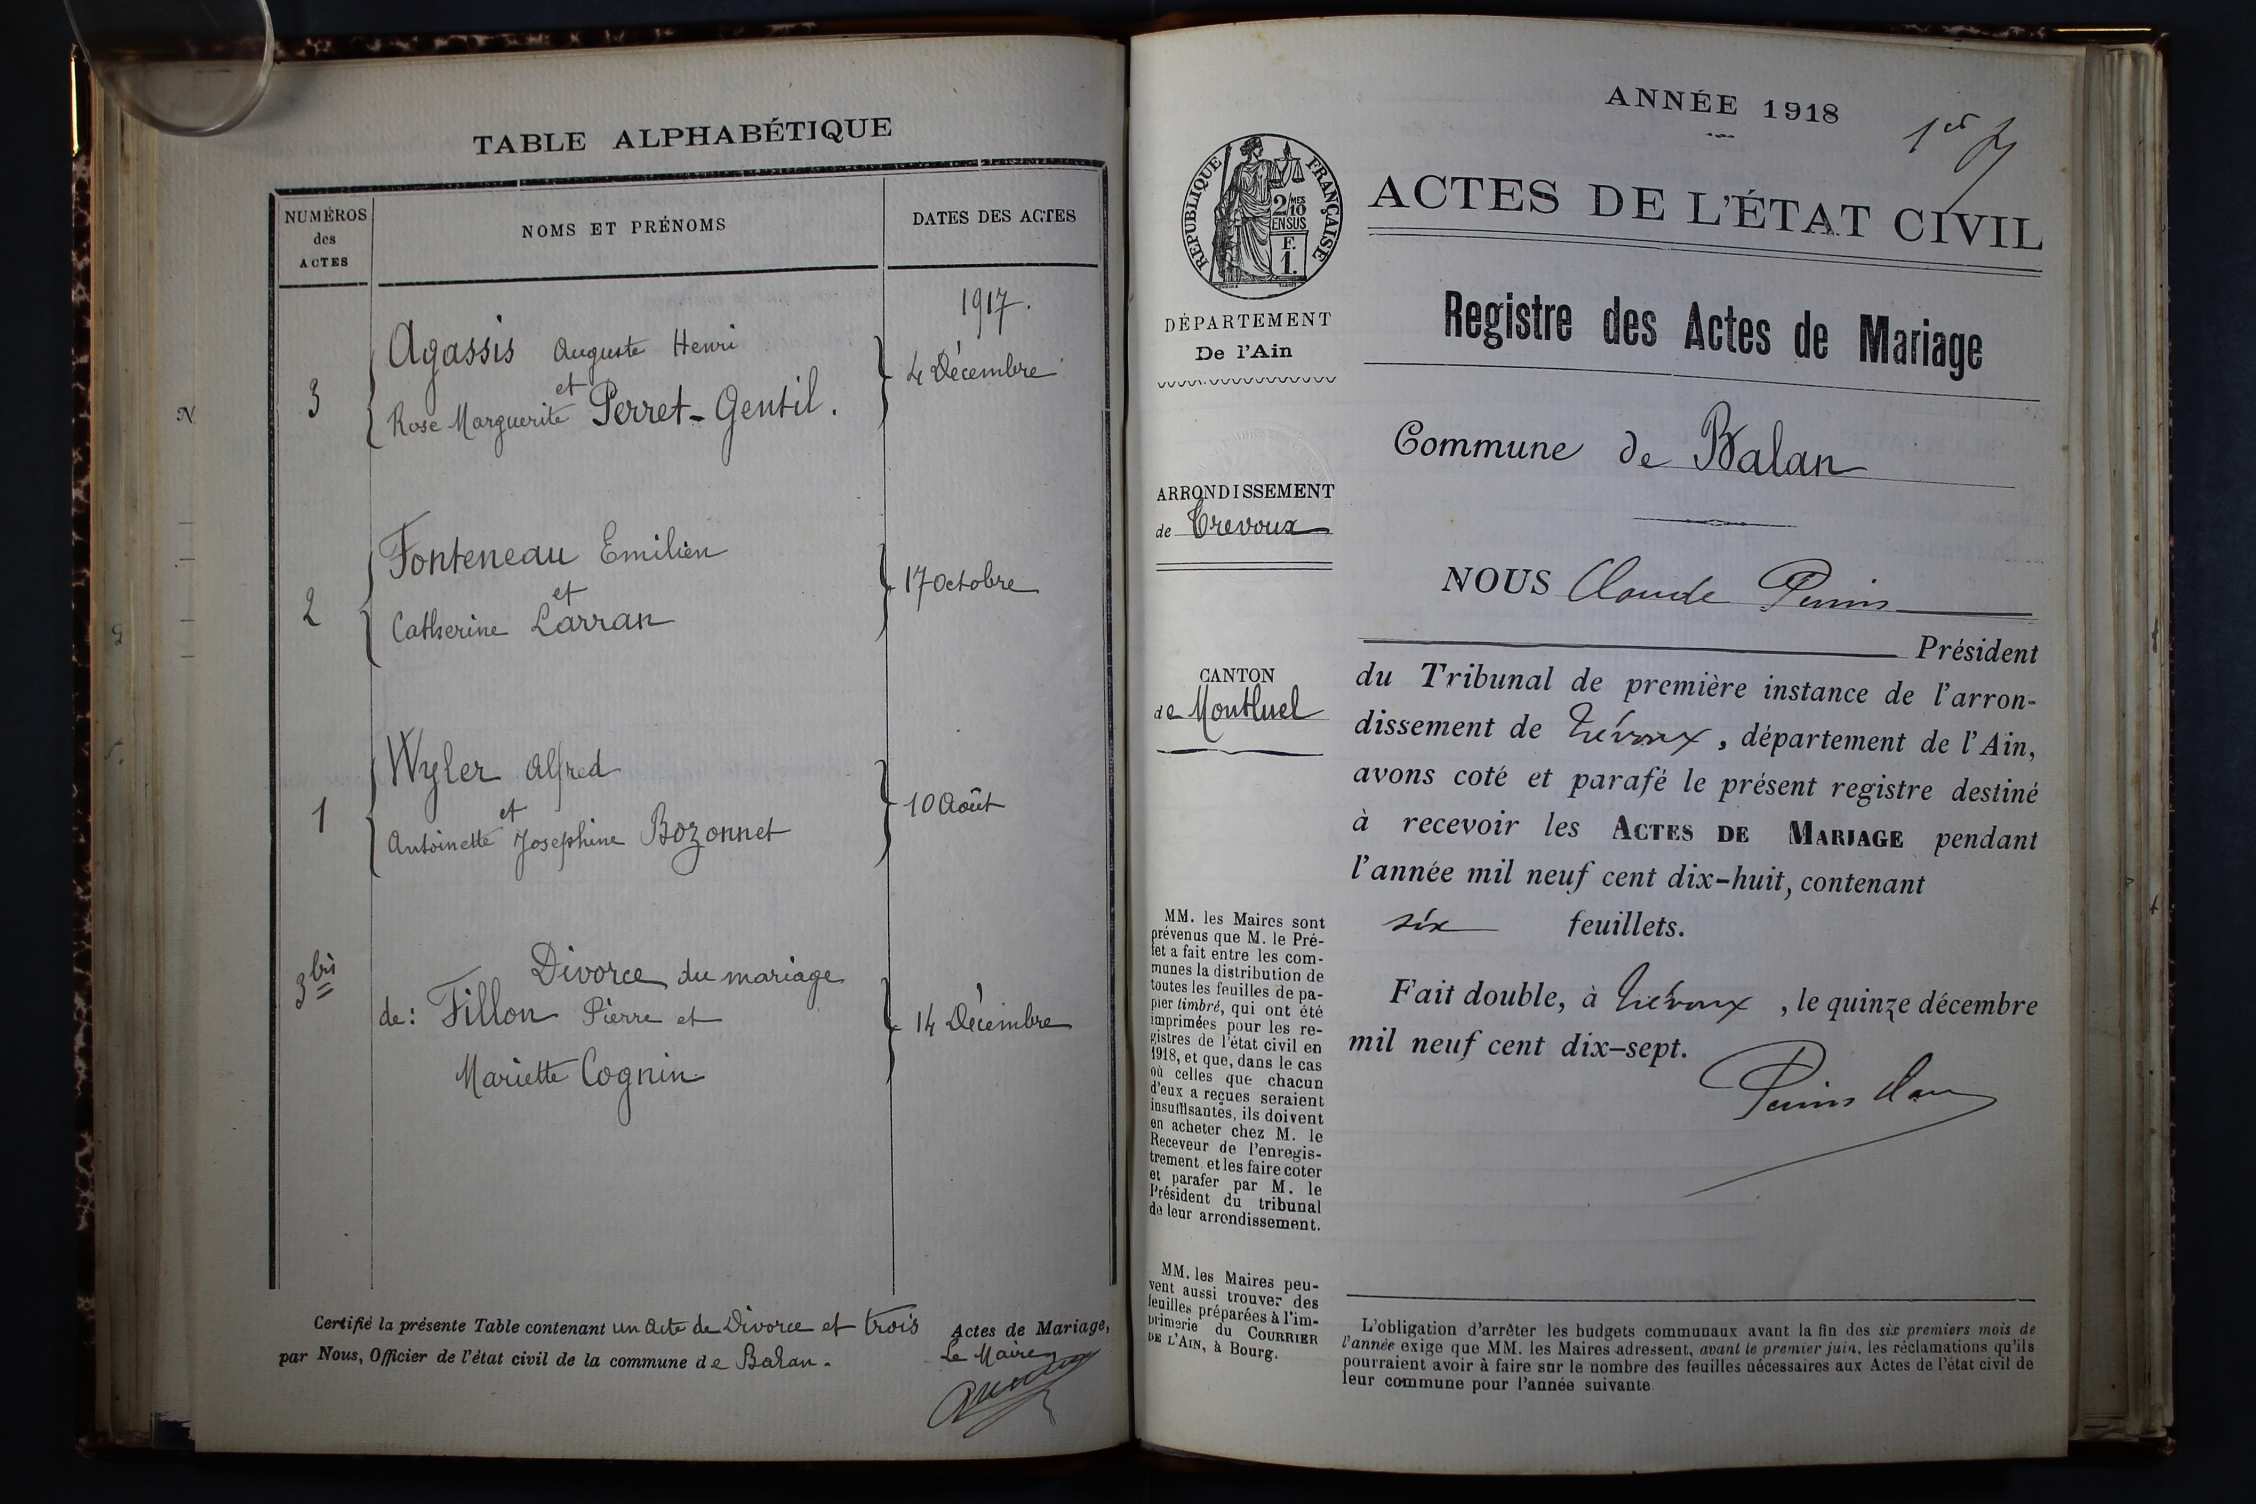 TABLE ALPHABÉTIQUE
NUMÉROS
des
ACTES
NOMS ET PRÉNOMS
DATES DES ACTES
1917.
3
Agassis Auguste Henri
et
Rose Marguerite Perret-Gentil.
4 Décembre
2
Fonteneau Emilien
et
Catherine Larran
17 Octobre
1
Wyler Alfred
et
Antoinette Josephine Bozonnet
10 Août
3 bis
Divorce du mariage
de: Fillon Pierre et
Mariette Cognin
14 Décembre
Certifié la présente Table contenant un Acte de Divorce et trois Actes de Mariage,
par Nous, Officier de l'état civil de la commune de Balan.
Le Maire
ANNÉE 1918
1er
RÉPUBLIQUE FRANÇAISE
2/10 MES
EN SUS
F.
1.
ACTES DE L'ÉTAT CIVIL
DÉPARTEMENT
De l'Ain
Registre des Actes de Mariage
Commune de Balan
ARRONDISSEMENT
de Trevoux
CANTON
de Montluel
NOUS Claude
Président
du Tribunal de première instance de l'arron-
dissement de Trévoux, département de l'Ain,
avons coté et parafé le présent registre destiné
à recevoir les ACTES DE MARIAGE pendant
l'année mil neuf cent dix-huit, contenant
six feuillets.
Fait double, à Trévoux, le quinze décembre
mil neuf cent dix-sept.
MM. les Maires sont
prévenus que M. le Pré-
fet a fait entre les com-
munes la distribution de
toutes les feuilles de pa-
pier timbré, qui ont été
imprimées pour les re-
gistres de l'état civil en
1918, et que, dans le cas
où celles que chacun
d'eux a reçues seraient
insuffisantes, ils doivent
en acheter chez M. le
Receveur de l'enregis-
trement et les faire coter
et parafer par M. le
Président du tribunal
de leur arrondissement.
MM. les Maires peu-
vent aussi trouver des
feuilles préparées à l'im-
primerie du COURRIER
DE L'AIN, à Bourg.
L'obligation d'arrêter les budgets communaux avant la fin des six premiers mois de
l'année exige que MM. les Maires adressent, avant le premier juin, les réclamations qu'ils
pourraient avoir à faire sur le nombre des feuilles nécessaires aux Actes de l'état civil de
leur commune pour l'année suivante